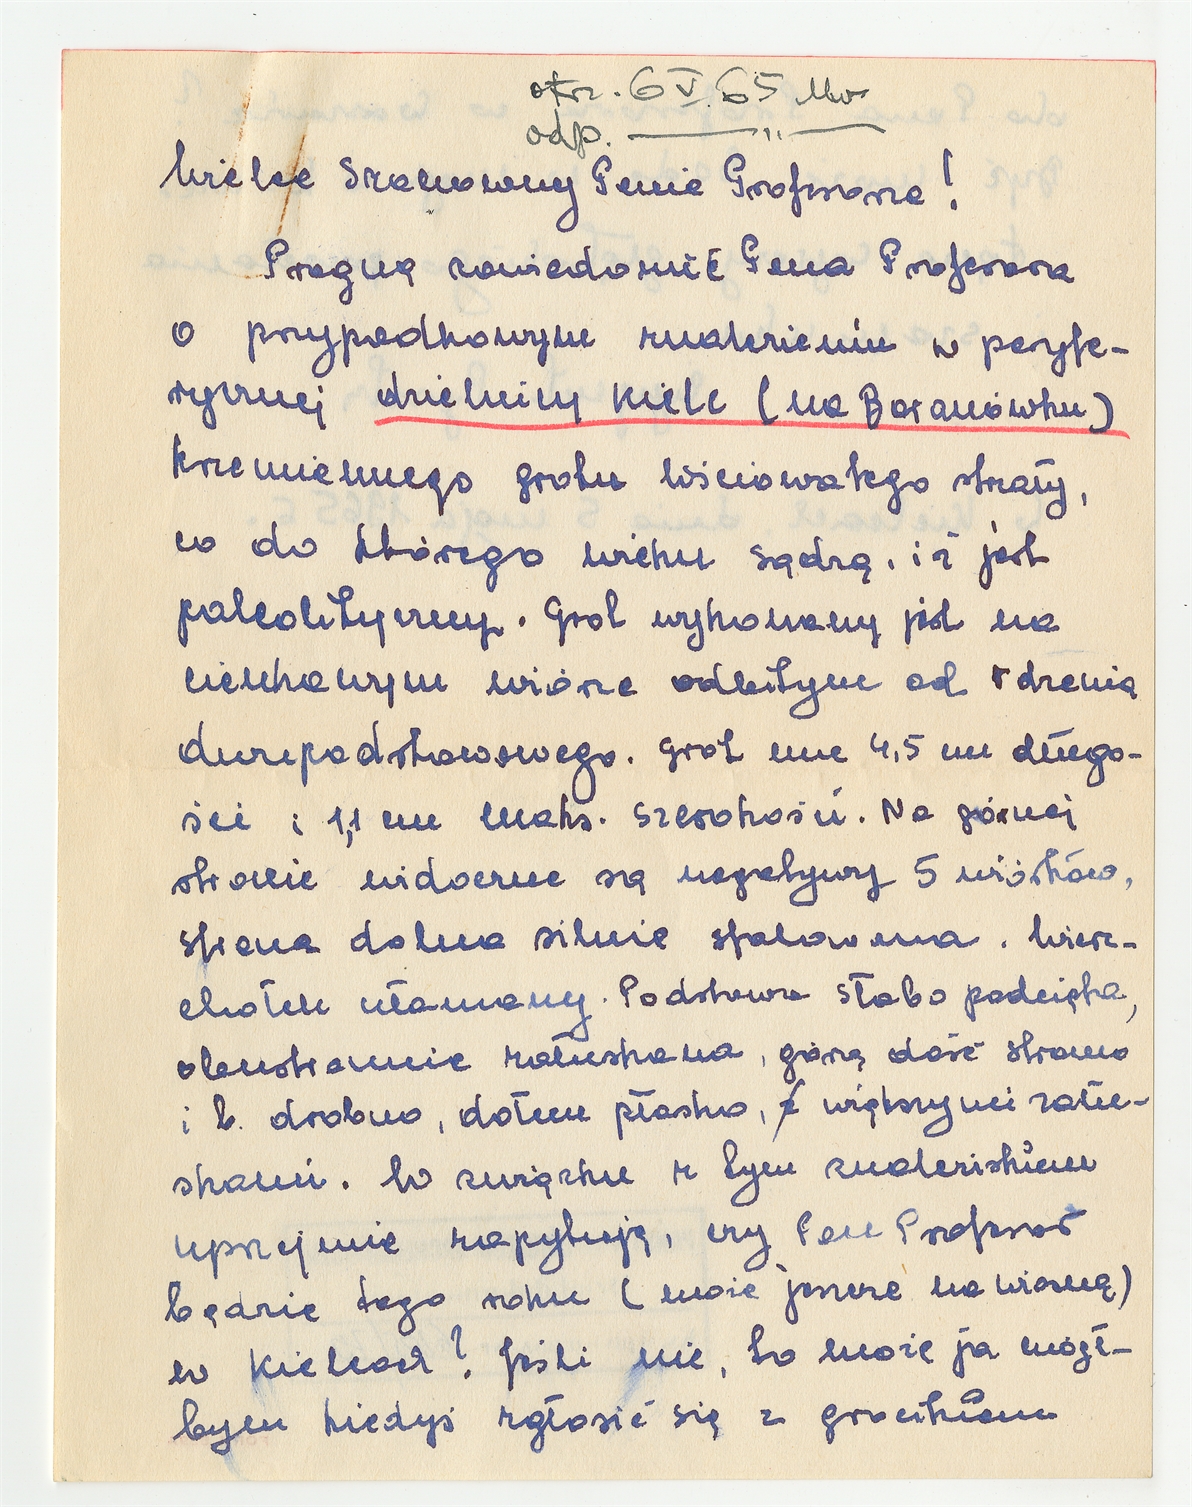 otrz. 6 V. 65
odp. — " —
Wielce Szanowny Panie Profesorze!
Pragnę zawiadomić Pana Profesora
o przypadkowym znalezieniu w peryfe-
rycznej dzielnicy Kielc (na Baranówku)
krzemiennego grotu liściowatego strzały,
co do którego wieku sądzę, iż jest
paleolityczny. Grot wykonany jest na
cienkawym wiórze odbitym od rdzenia
dwupodstawowego. Grot ma 4,5 cm długo-
ści i 1,1 cm maks. szerokości. Na górnej
stronie widoczne są negatywy 5 wiórków,
strona dolna silnie sfalowana. Wierz-
chołek ułamany. Podstawa słabo podcięta,
obustronnie załuskana, górą dość stromo
i b. drobno, dołem płasko, z większymi zału-
skami. W związku z tym znaleziskiem
uprzejmie zapytuję, czy Pan Profesor
będzie tego roku (może jeszcze na wiosnę)
w Kielcach? Jeśli nie, to może ja mógł-
bym kiedyś zgłosić się z grocikiem